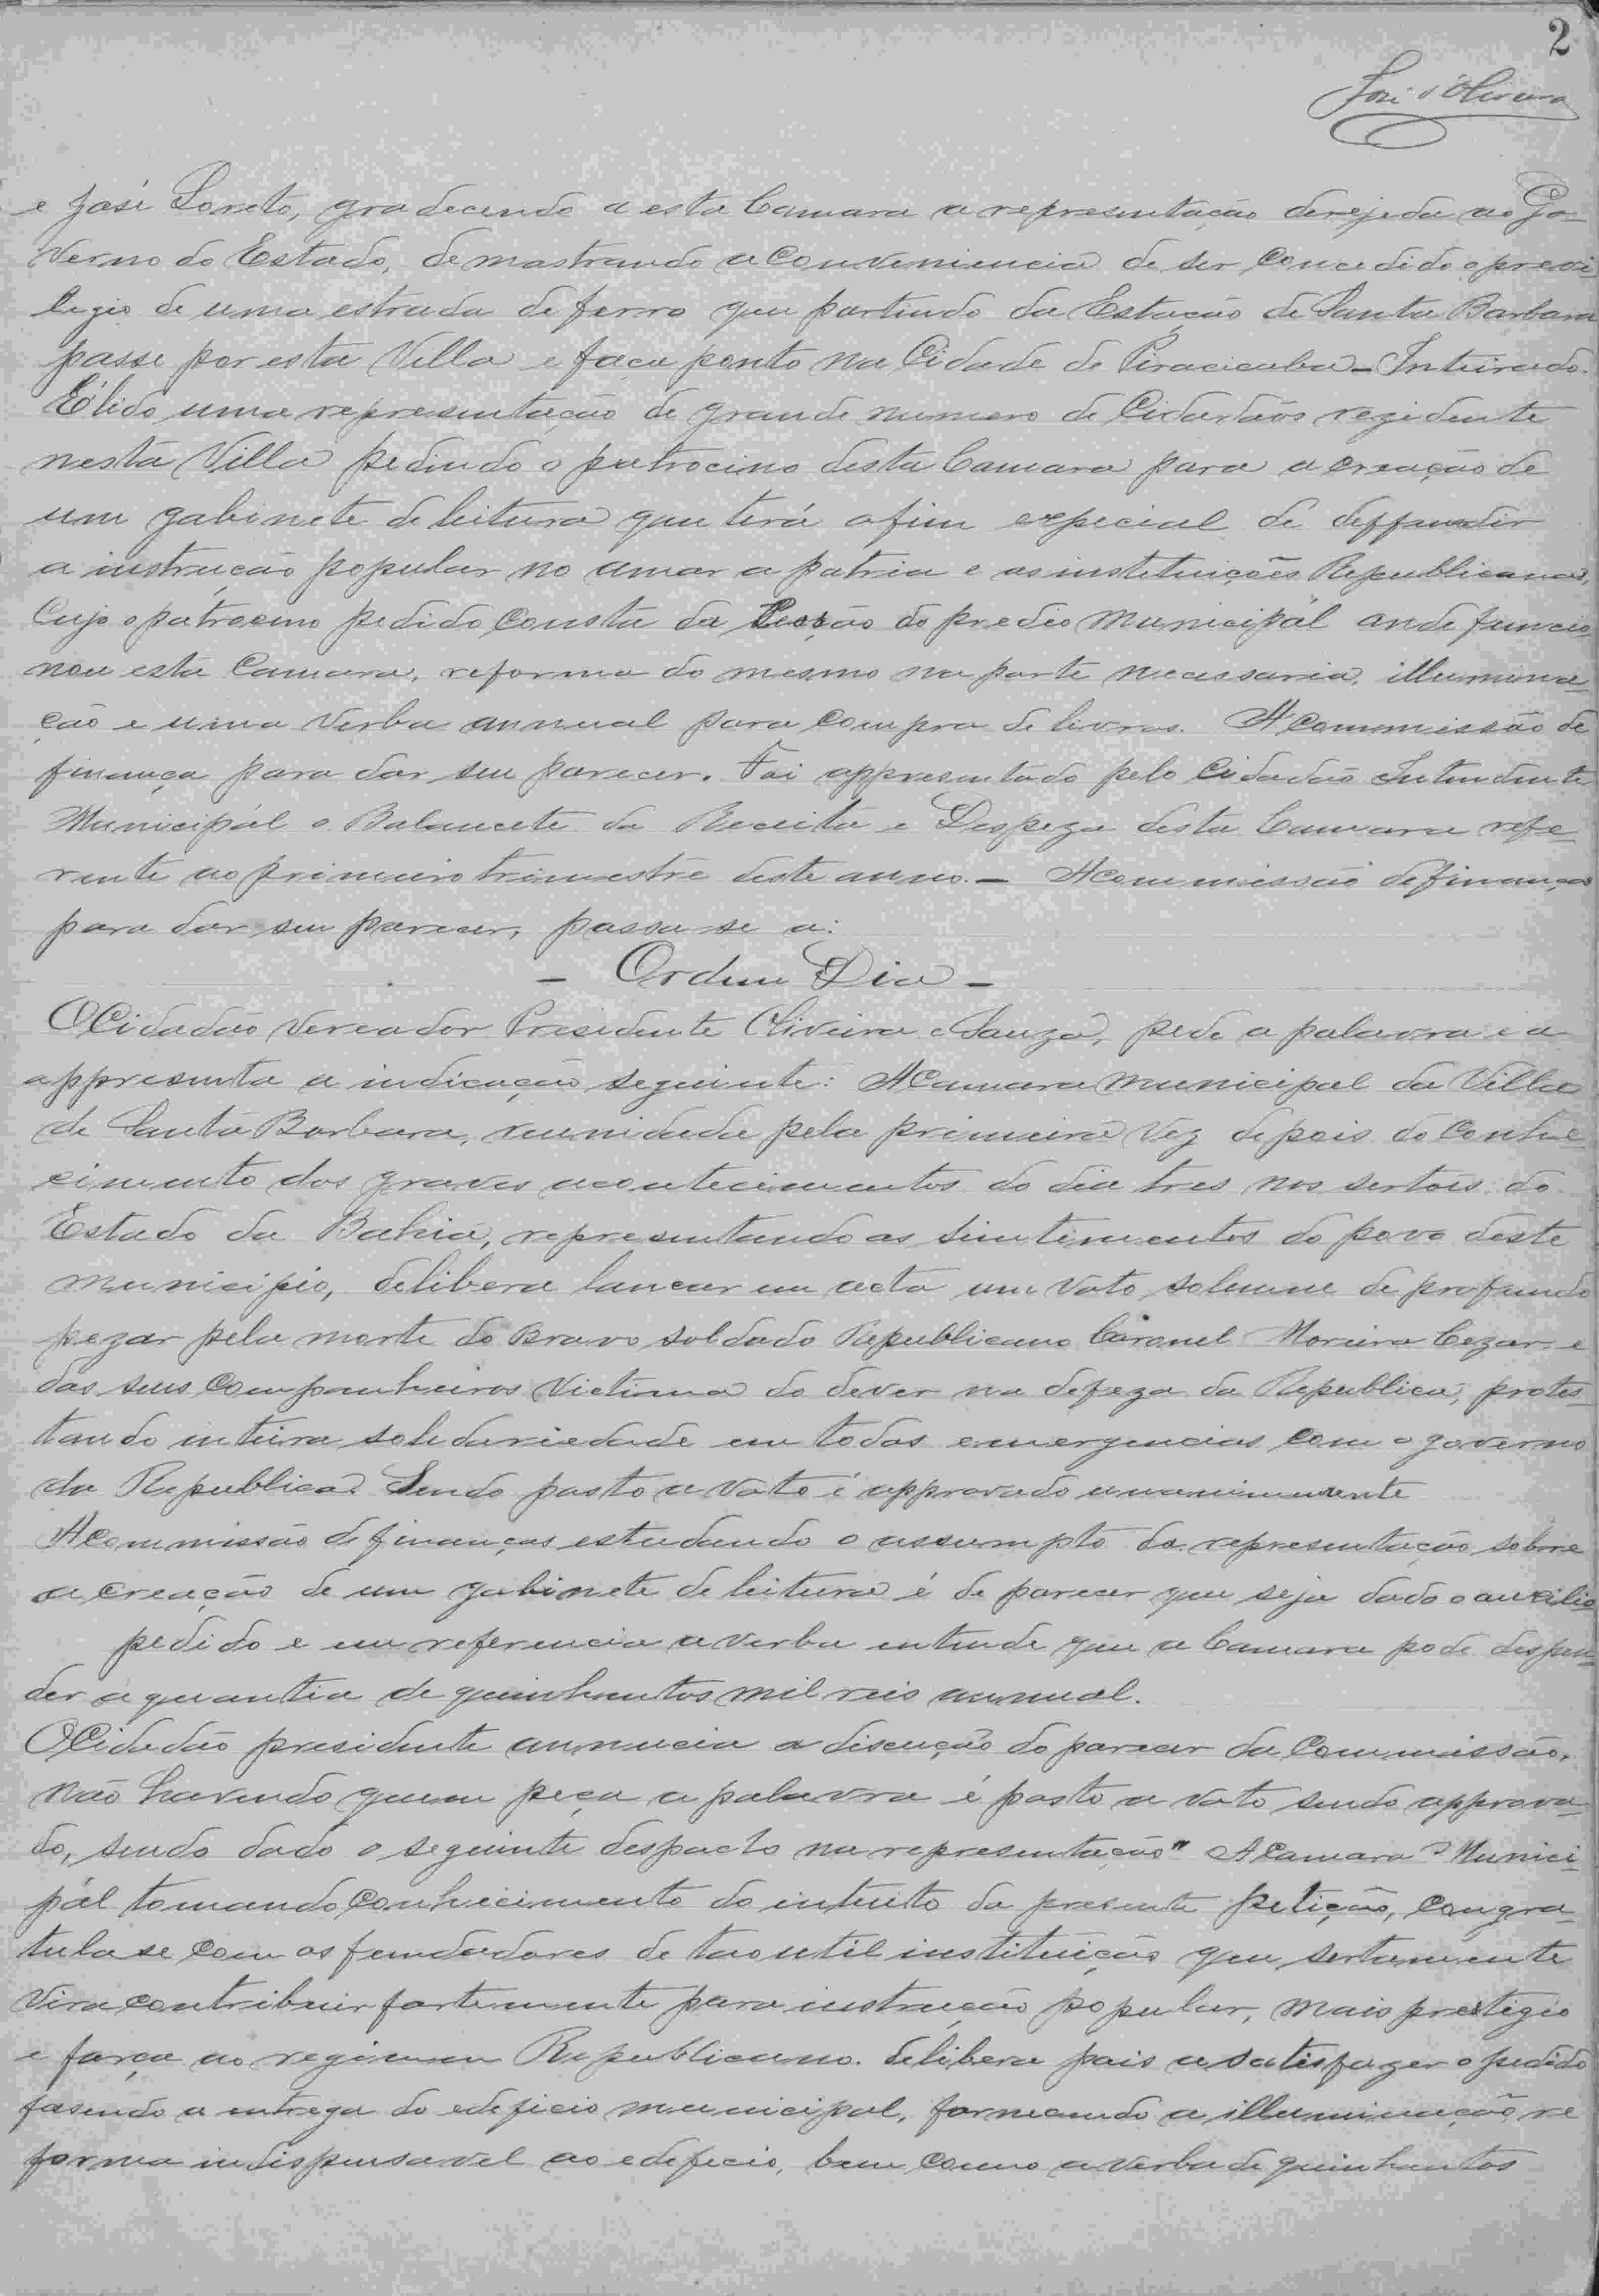 2
José d'Oliveira
e José Loreto, gradecendo a esta Camara a representação derejeda ao Go-
verno do Estado, demostrando a conveniencia de ser concedido o previ
legio de uma estrada de ferro que partindo da Estação de Santa Barbara
passe por esta Villa e faça ponto na Cidade de Piracicaba - Inteirado.
É lido uma representação de grande numero de Cidadãos rezidente
nesta Villa pedindo o patrocino desta Camara para a creação de
um gabinete de leitura que terá o fim especial de deffundir
a instrucção popular no amor a patria e as instituições Republicanas,
Cujo o patrocino pedido Consta da Cessão do predio Municipal onde funccio
nou esta Camara, reforma do mesmo na parte necessaria, illumina-
ção e uma verba annual para compra de livros. A Commissão de
finança para dar seu parecer. Foi appresentado pelo Cidadão Intendente
Municipal o Balancete da Receita e Despeza desta Camara refe-
rente ao primeiro trimestre deste anno. - A Commissão de finanças
para dar seu parecer, passa-se a:
- Ordem Dia -
O Cidadão Vereador Presidente Oliveira e Souza, pede a palavra e a
appresenta a indicação seguinte: A Camara Municipal da Villa
de Santa Barbara, reunidada pela primeira vez depois do Conhe
cimento dos graves acontecimentos do dia tres nos sertois do
Estado da Bahia, representando os sentimentos do povo deste
municipio, delibera lancar em acta um voto solemne de profundo
pezar pela morte do Bravo soldado Republicano Coronel Moreira Cezar e
dos seus companheiros victima do dever na defeza da Republica, protes-
tando inteira soledariedade em todas emergencias com o governo
da Republica. Sendo posto a voto é approvado unanimemente
A Commissão de finanças estudando o assumpto da representação sobre
a creação de um gabinete de leitura é de parecer que seja dado o auxilio
pedido e em referencia a verba entende que a Camara pode despen-
der a quantia de quinhentos mil reis annual.
O Cidadão presidente annuncia a discução do parecer da Commissão,
não havendo quem peça a palavra é posto a voto sendo approva-
do, sendo dado o seguinte despacto na representação" A Camara Munici-
pal tomando conhecimento do intuito da presente petição, congra-
tula se com os fundadores de tao util instituição que sertamente
vira contribuir fortemente para instrucção popular, mais prestigio
e força ao regimem Republicano. delibera pois a satisfazer o pedido
fasendo a entrega do edeficio municipal, fornecendo a illuminação re
forma indispensavel ao edeficio, bem como a verba de quinhentos